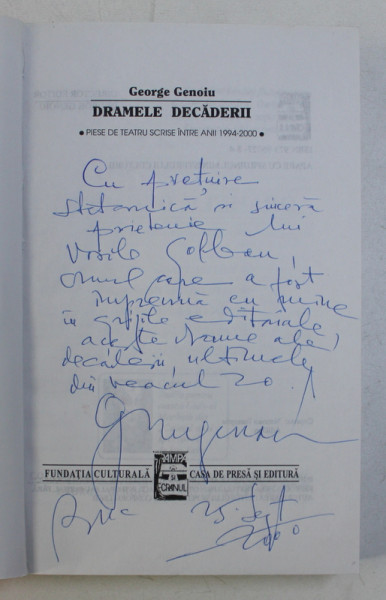 George Genoiu
DRAMELE DECĂDERII
• PIESE DE TEATRU SCRISE ÎNTRE ANII 1994-2000 •
Cu prețuire
statornică și sinceră
prietenie lui
Vasile
omul care a fost
împreună cu mine
în grijile editoriale
aceste drame ale
decăderii, ultimele
din veacul 20.
FUNDAȚIA CULTURALĂ
RAMPA
ȘI
ECRANUL
CASA DE PRESĂ ȘI EDITURĂ
25 Sept
2000